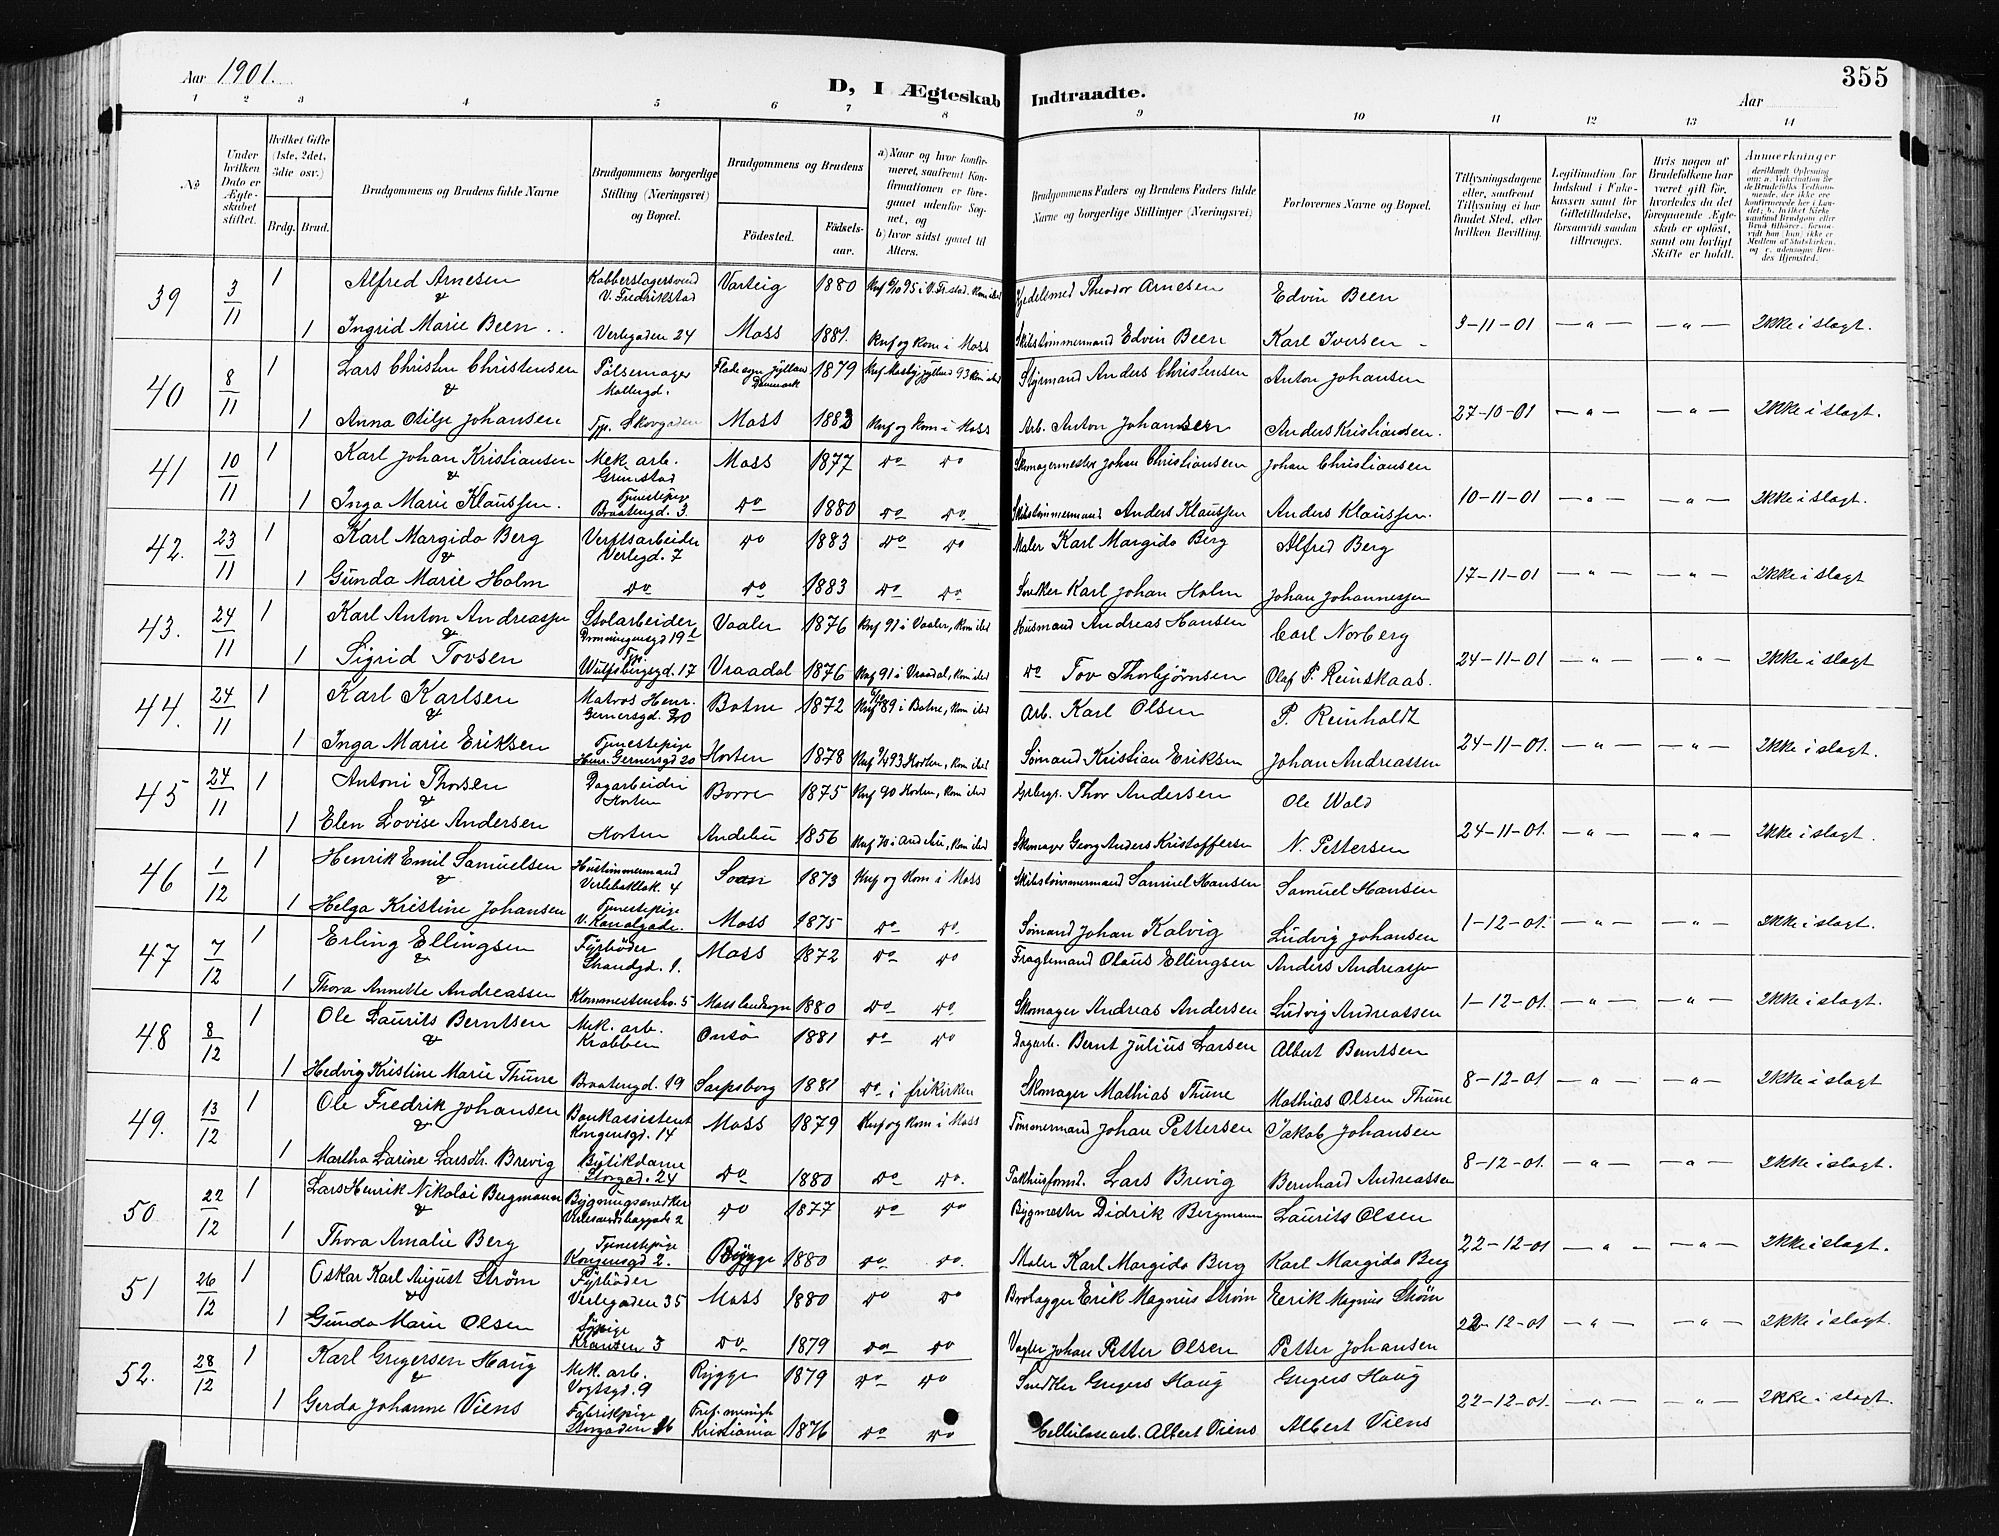 Aar 1901.
D, I Ægteskab Indtraadte.
355
Aar
1 2 3 4 5 6 7 8 9 10 11 12 13 14
No
Under hvilken Dato er Ægteskabet stiftet.
Hvilket Gifte (1ste, 2det, 3die osv.)
Brdg. Brud.
Brudgommens og Brudens fulde Navne
Brudgommens borgerlige Stilling (Næringsvei) og Bopæl.
Brudgommens og Brudens
Fødested. Fødselsaar.
a) Naar og hvor konfirmeret, saafremt Konfirmationen er foregaaet udenfor Sognet, og
b) hvor sidst gaaet til Alters.
Brudgommens Faders og Brudens Faders fulde Navne og borgerlige Stillinger (Næringsvei)
Forlovernes Navne og Bopæl.
Tillysningsdagene eller, saafremt Tillysning ei har fundet Sted, efter hvilken Bevilling.
Legitimation for Indskud i Enkekassen samt for Giftetilladelse, forsaavidt saadan tiltrænges.
Hvis nogen af Brudefolkene har været gift før, hvorledes da det foregaaende Ægteskab er opløst, samt om lovligt Skifte er holdt.
Anmerkninger
39 3/11 1 Alfred Arnesen Kobberslagersvend V. Fredrikstad Varteig 1880 Gjørtelsmed Theodor Arnesen Edvin Been
& 1 Ingrid Marie Been Verlegaden 24 Moss 1881. Knf og kom i Moss Skibstømmermand Edvin Been Karl Iversen 3-11-01 — " — — " — Ikke i slægt.
40 8/11 1 Lars Christen Christensen Pølsemager Møllergd. Danmark 1879 Styrmand Anders Christensen Anton Johansen
& 1 Anna Otilje Johansen Tjp. Skovgaden Moss 1883 Knf og kom i Moss Arb. Anton Johansen Anders Kristiansen. 27-10-01 — " — — " — Ikke i slægt.
41 10/11 1 Karl Johan Kristiansen Mek. arb. Grimstad Moss 1877 Do Do Skomagermester Johan Christiansen Johan Christiansen
& 1 Inga Marie Klaussen. Tjenestepige Braatengd. 3 Do 1880 Do Do. Skibstømmermand Anders Klaussen Anders Klaussen. 10-11-01 — " — — " — Ikke i slægt.
42. 23/11 1 Karl Margido Berg Verftsarbeider Verlegd. 7 Do 1883 Do Do Maler Karl Margido Berg Alfred Berg
& 1 Gunda Marie Holm Do Do 1883 Do Do. Karl Johan Holm Johan Johannessen 17-11-01 — " — — " — Ikke i slægt
43. 24/11 1 Karl Anton Andreassen Stolarbeider Dronningensgd 19 Vaaler 1876 Knf 91 i Vaaler, kom isted Husmand Andreas Hansen Carl Norberg
& 1 Sigrid Tovsen Tjp. Wulfsbergsgd. 17 Vraadal 1876 Knf 91 i Vraadal, kom isted Do Tov Thorbjørnsen Olaf P. Reinskaas. 24-11-01 — " — — " — Ikke i slægt
44. 24/11 1 Karl Karlsen Matros Henr. Gernersgd. 20 Botne 1872 89 i Botne, kom isted Arb. Karl Olsen P. Reinholdt
& 1 Inga Marie Eriksen Tjenestepige Henr. Gernersgd 20 Horten 1878 93 Horten, kom isted Sømand Kristian Eriksen Johan Andreassen 24-11-01. — " — — " — Ikke i slægt.
45 24/11 1 Antoni Thorsen Dagarbeider Horten Borre 1875 Knf 90 Horten, kom isted Thor Andersen Ole Wold
& 1 Elen Lovise Andersen Horten Andebu 1856 Knf 70 i Andebu, kom isted Skomager Georg Anders Kristoffersen N. Pettersen 24-11-01. — " — — " — Ikke i slægt.
46 1/12 1 Henrik Emil Samuelsen Hustømmermand Verlebakkek. 4 Soon 1873 Knf og kom i Moss Skibstømmermand Samuel Hansen Samuel Hansen
& 1 Helga Kristine Johansen Tjenestepige V. Kanalgade. Moss 1875 Do Do. Sømand Johan Kalvig Ludvig Johansen 1-12-01. — " — — " — Ikke i slægt.
47 7/12 1 Erling Ellingsen Fyrbøder Strandgd. 1. Moss 1872 Do Do Fragtemand Olaus Ellingsen Anders Andreassen
& 1 Thora Annette Andreassen 5 Moss landsogn 1880 Do Do. Skomager Andreas Andersen Ludvig Andreassen 1-12-01. — " — — " — Ikke i slægt.
48 8/12 1 Ole Laurits Berntsen Mek. arb. Krabben Onsø 1881 Do Do Dagarb. Bernt Julius Larsen Albert Berntsen
& 1 Hedvig Kristine Marie Thune Braatengd. 19 Sarpsborg 1881 Do i frikirken Skomager Mathias Thune Mathias Olsen Thune 8-12-01 — " — — " — Ikke i slægt
49. 13/12 1 Ole Fredrik Johansen Bankassistent Kongensgd. 14 Moss 1879 Knf og kom i Moss Tømmermand Johan Pettersen Jakob Johansen
& 1 Martha Larine Larsdh. Brevig Butikdame Storgad. 24 Do 1880 Do Do. Pakhusformd. Lars Brevig Bernhard Andreassen 8-12-01. — " — — " — Ikke i slægt.
50 22/12 1 Lars Henrik Nikolai Bergmann Bygningssnedker 2 Do 1877 Do Do Bygmester Didrik Bergmann Laurits Olsen
& 1 Thora Amalie Berg Tjenestepige Kongensgd 2. Rygge 1880 Do Do. Maler Karl Margido Berg Karl Margido Berg 22-12-01 — " — — " — Ikke i slægt.
51 26/12 1 Oskar Karl August Strøm Fyrbøder Verlegaden 35 Moss 1880 Do Do Brolægger Erik Magnus Strøm Eerik Magnus Strøm
& 1 Gunda Marie Olsen Sypige Kransen 3 Do 1879 Do Do Vægter Johan Petter Olsen Petter Johansen 22-12-01 — " — — " — Ikke i slægt.
52. 28/12 1 Karl Gregersen Haug Mek. arb. Vogtsgd. 9 Rygge 1879 Do Do Snedker Gregers Haug Gregers Haug
& 1 Gerda Johanne Viens Fabrikpige Storgaden 26 Tref. menigh Kristiania 1876 Do Do Cellulosearb. Albert Viens Albert Viens 22-12-01. — " — — " — Ikke i slægt.